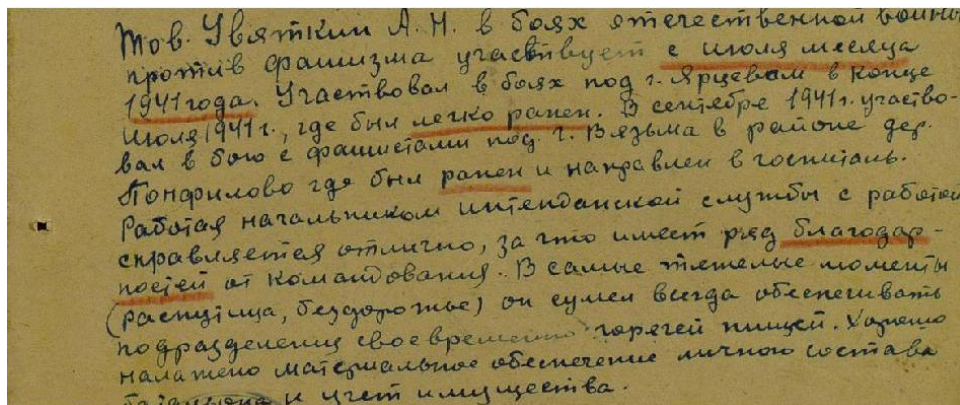 Тов. Увяткин А. Н. в боях отечественной войны
против фашизма участвует с июля месяца
1941 года. Участвовал в боях под г. Ярцевом в конце
июля 1941 г., где был легко ранен. В сентябре 1941 г. участво-
вал в бою с фашистами под г. Вязьма в районе дер.
Понфилово где был ранен и направлен в госпиталь.
Работая начальником интенданской службы с работой
справляется отлично, за что имеет ряд благодар-
ностей от командования. В самые тяжелые моменты
(распутица, бездорожье) он сумел всегда обеспечивать
подразделения своевременно горячей пищей. Хорошо
налажено материальное обеспечение личного состава
батальона и учет имущества.